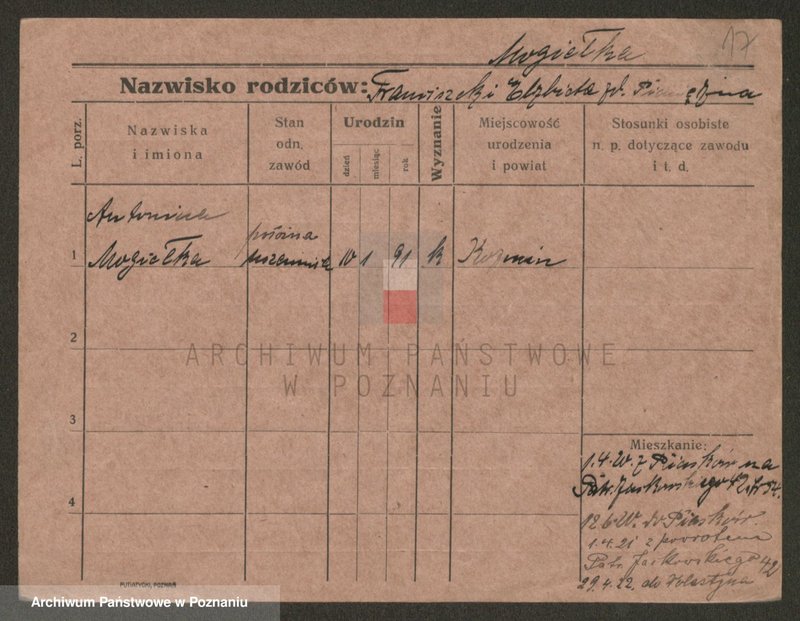 17
Mogiełka
Nazwisko rodziców: Franciszek i Elżbieta
L. porz.
Nazwiska
i imiona
Stan
odn.
zawód
Urodzin
dzień
miesiąc
rok
Wyznanie
Miejscowość
urodzenia
i powiat
Stosunki osobiste
n. p. dotyczące zawodu
i t. d.
Antonina
1 Mogiełka 10 1 91 k Koźmin
2
3
4
Mieszkanie:
1.4.20. z Piasków na
Patr. Jackowskiego 42
12.6.20. do Piasków.
1.4.21 z powrotem
Patr. Jackowskiego 42
29.4.22. do
PUTIATYCKI, POZNAŃ
ARCHIWUM PAŃSTWOWE
W POZNANIU
Archiwum Państwowe w Poznaniu